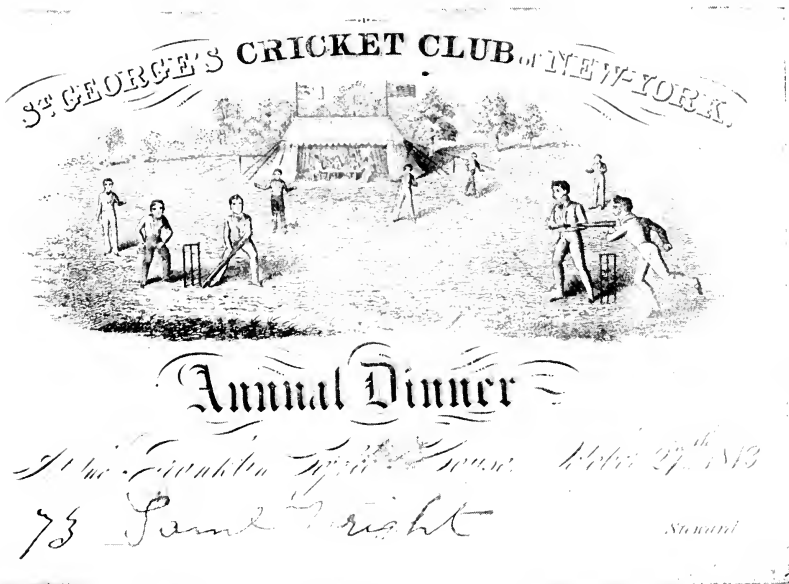 ST GEORGE'S CRICKET CLUB of NEW-YORK.
Annual Dinner
At the Franklin House. 27th 1843
73 Saml Wright
Steward